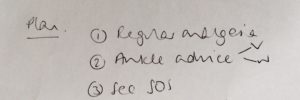 Plan. ① Regular analgesia
② Ankle advice
③ See SOS